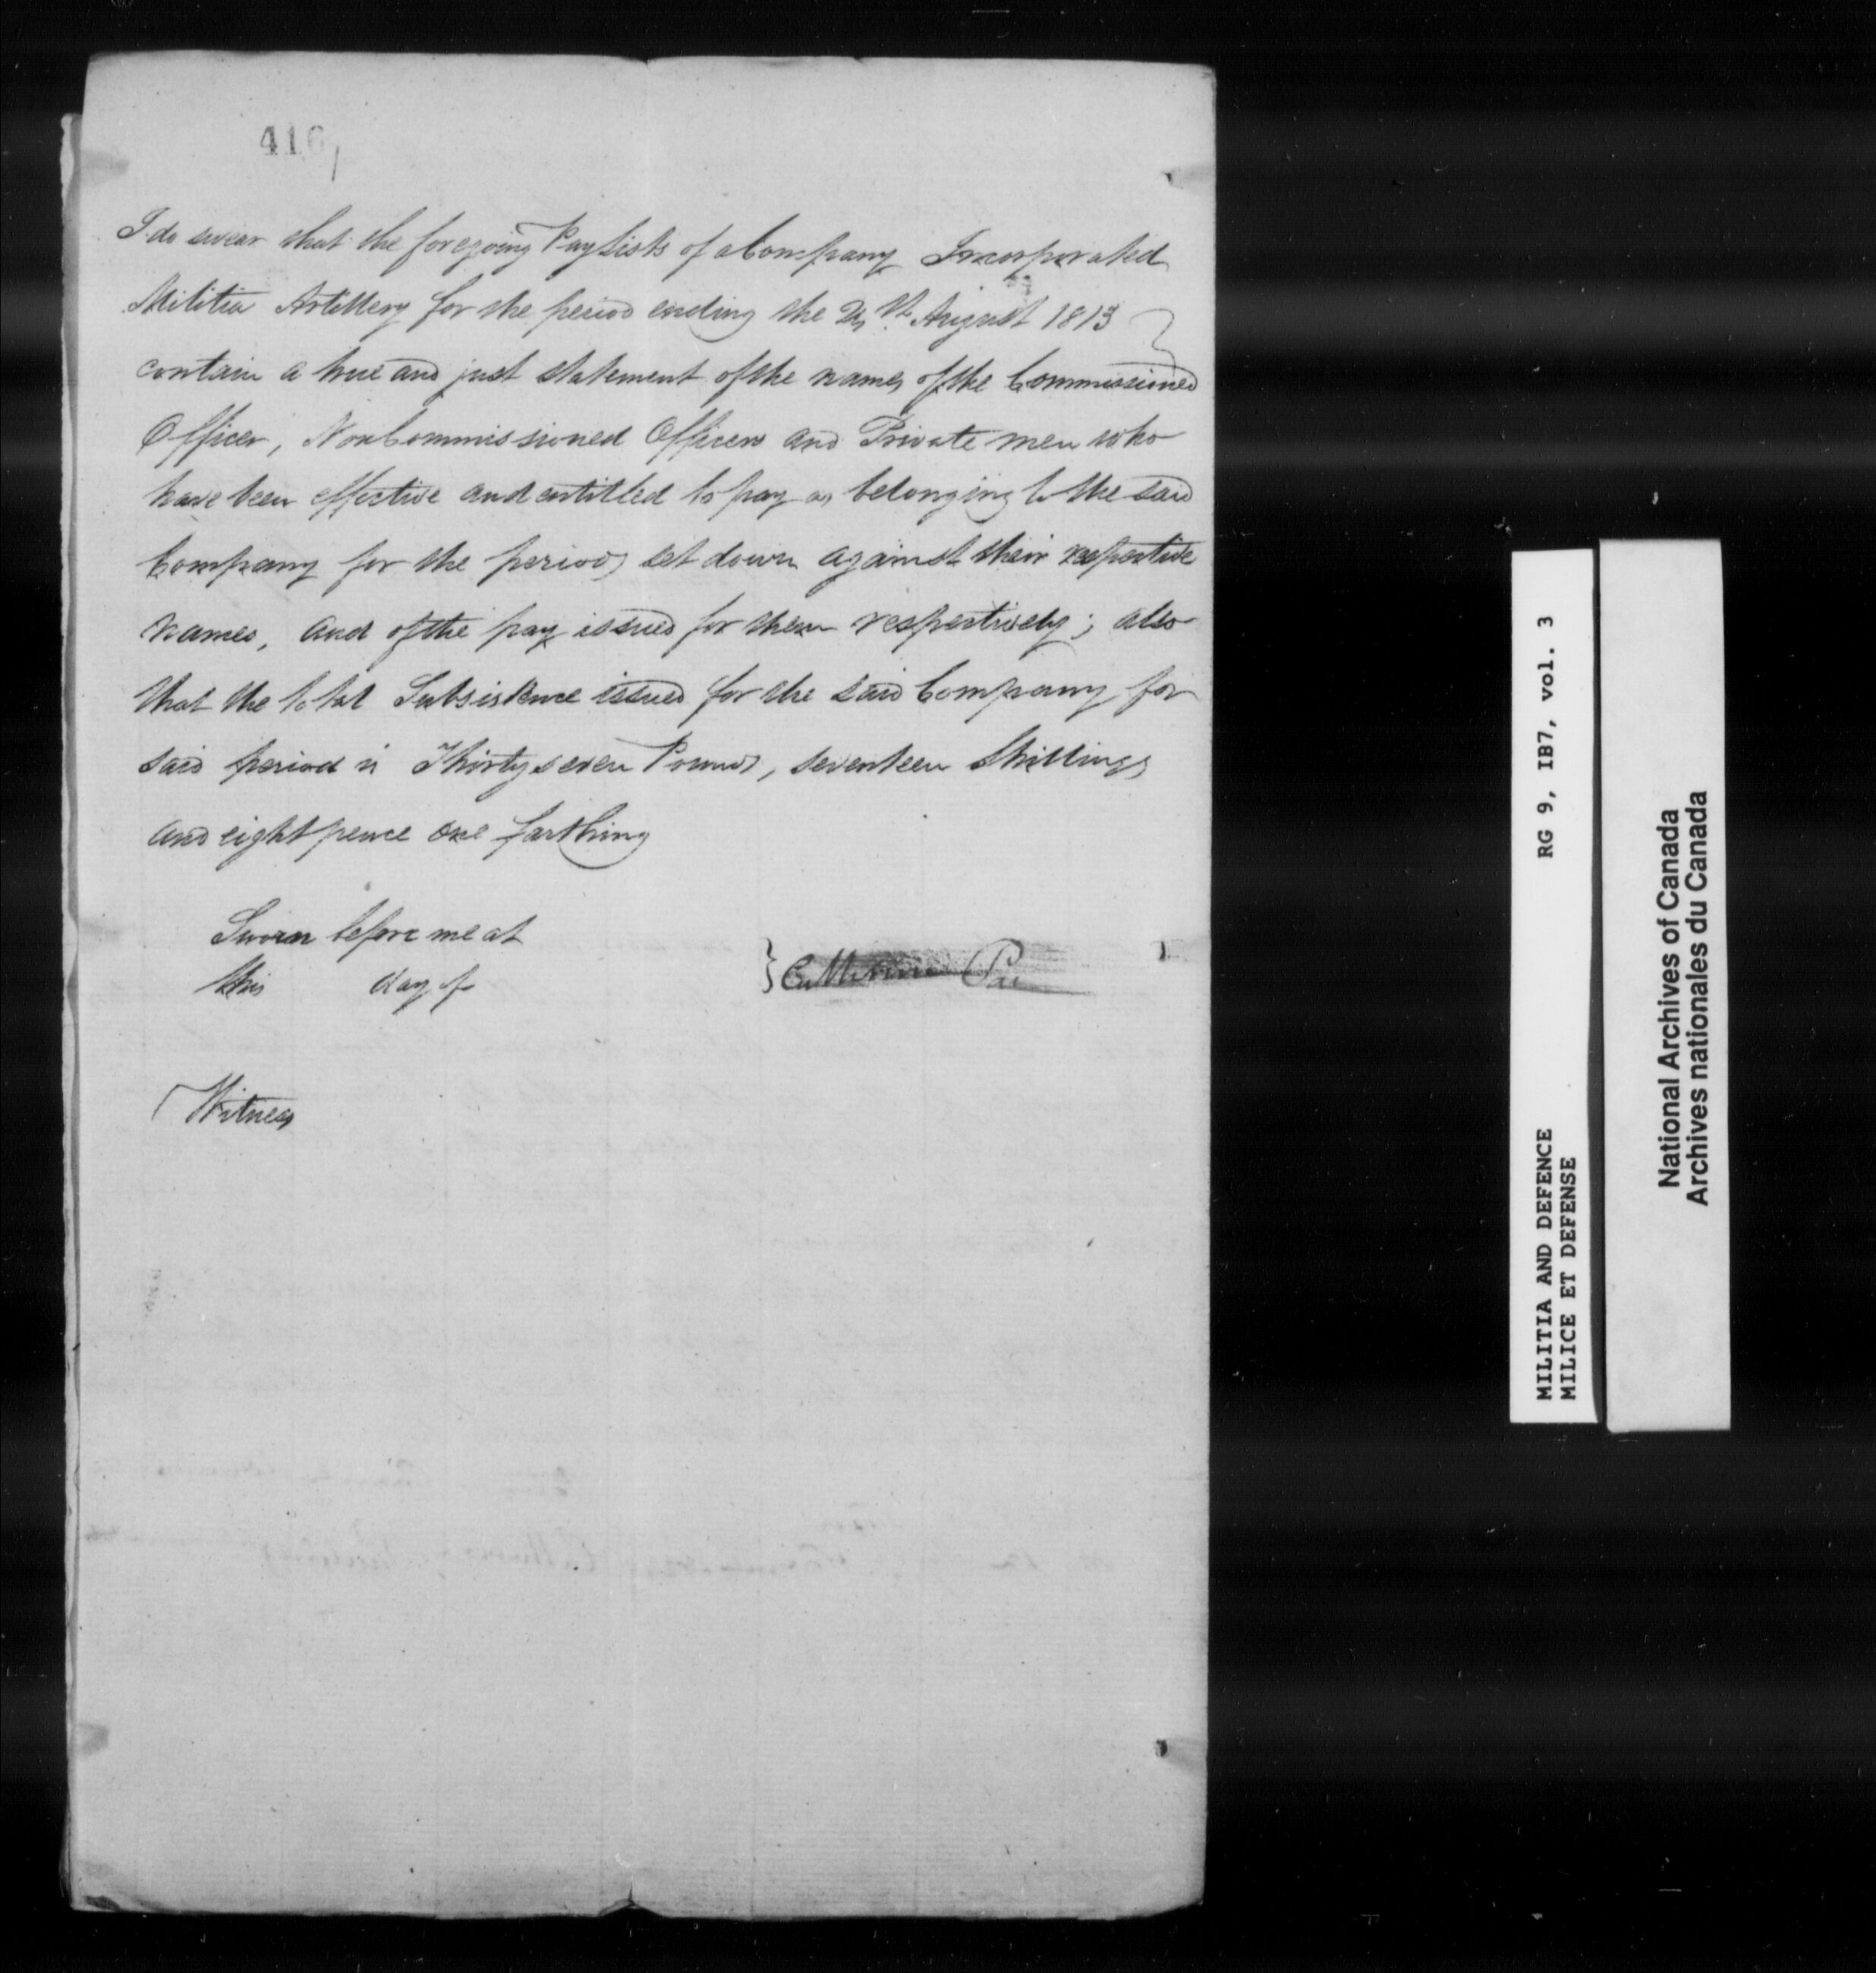 416
I do swear that the foregoing Pay Lists of a Company Incorporated
Militia Artillery for the period ending the 24th August 1813
contain a true and just statement of the names of the Commissioned
Officer, NonCommissioned Officers and Private men who
have been effective and entitled to pay as belonging to the said
Company for the periods set down against their respective
names, and of the pay issued for them respectively; also
that the total Subsistence issued for the said Company for
said period is Thirty seven Pounds, seventeen Shillings
and eight pence one farthing
Sworn before me at
this day of
Witness
MILITIA AND DEFENCE RG 9, IB7, vol. 3
MILICE ET DEFENSE
National Archives of Canada
Archives nationales du Canada